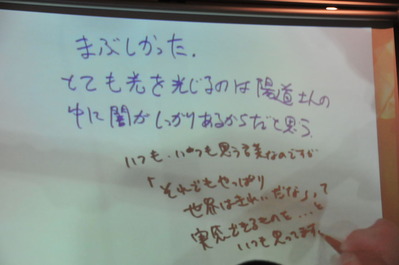 まぶしかった.
とても光を光じるのは陽道さんの
中に闇がしっかりあるからだと思う.
いつも、いつも思う言葉なのですが
「それでもやっぱり
世界はきれいだな」って
実感できるものを...と
いつも思ってます.